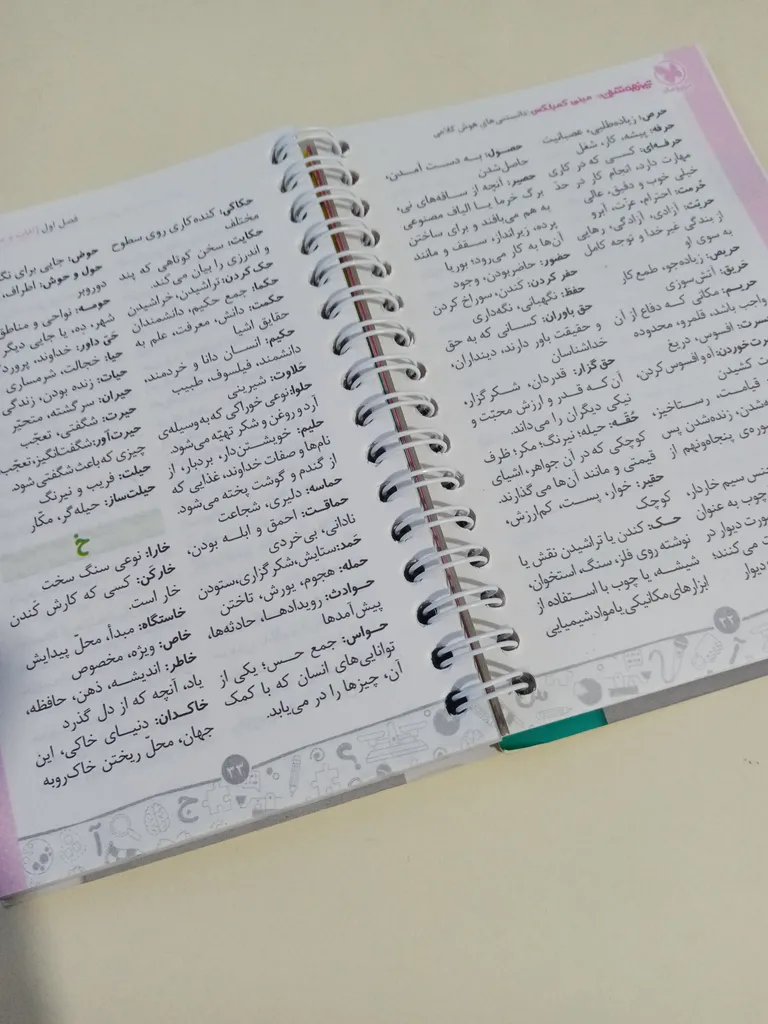 تیزهوشان مینی کمپلکس دانستنی‌های هوش کلامی
حرص: زیاده‌طلبی، عصبانیت
حرفه: پیشه، کار، شغل
حرفه‌ای: کسی که در کاری
مهارت دارد، انجام کار در حد
خیلی خوب و دقیق، عالی
حُرمت: احترام، عزّت، آبرو
حریّت: آزادی، آزادگی، رهایی
از بندگی غیر خدا و توجه کامل
به سوی او
حریص: زیاده‌جو، طمع کار
حریق: آتش‌سوزی
حریم: مکانی که دفاع از آن
واجب باشد، قلمرو، محدوده
حسرت: افسوس، دریغ
حسرت خوردن: آه و افسوس کردن،
کشیدن
قیامت، رستاخیز
شدن، زنده‌شدن پس
سوره‌ی پنجاه‌ونهم از
جنس سیم خاردار،
چوب به عنوان
صورت دیوار در
می‌کنند؛
دیوار
حصول: بـه دسـت آمـدن،
حاصل‌شدن
حصیر: آنچه از ساقه‌های نی،
برگ خرما یا الیاف مصنوعی
به هم می‌بافند و برای ساختن
پرده، زیرانداز، سـقف و مانند
آن‌ها به کار می‌رود؛ بوریا
حضور: حاضربودن، وجود
حفر کردن: کندن، سوراخ کردن
حفظ: نگهبانی، نگه‌داری
حق باوران: کسانی که به حق
و حقیقت باور دارند، دینداران،
خداشناسان
حق‌گزار: قدردان، شـکرگزار،
آن کـه قـدر و ارزش محبّت و
نیکی دیگران را می‌داند.
حُقّـه: حیله؛ نیرنگ؛ مکر؛ ظرف
کوچکی که در آن جواهر، اشیای
قیمتی و مانند آن‌ها می‌گذارند.
حقیر: خوار، پسـت، کم‌ارزش،
کوچک
حـک: کندن یا تراشیدن نقش یا
نوشته روی فلز، سنگ، استخوان،
شیشه، یا چوب با استفاده از
ابزارهای مکانیکی یا مواد شیمیایی
۳۲
فصل اول
حکاکی: کنده‌کاری روی سطوح
مختلف
حکایت: سخن کوتاهی که پند
و اندرزی را بیان می‌کند.
حک کردن: تراشیدن، خراشیدن
حکما: جمع حکیم، دانشمندان
حکمت: دانش، معرفت، علم به
حقایق اشیا
حکیم: انسـان دانا و خردمند،
دانشمند، فیلسوف، طبیب
حَلاوت: شیرینی
حلوا: نوعی خوراکی که به وسیله‌ی
آرد و روغن و شکر تهیّه می‌شود.
حلیم: خویشتن‌دار، بردبار، از
نام‌ها و صفات خداوند، غذایی که
از گندم و گوشت پخته می‌شود.
حماسه: دلیری، شجاعت
حماقـت: احمق و ابلـه بودن،
نادانی، بی‌خردی
حَمد: ستایش، شکرگزاری، ستودن
حمله: هجوم، یورش، تاختن
حـوادث: رویدادهـا، حادثه‌ها،
پیش‌آمدها
حـواس: جمع حس؛ یکی از
توانایی‌های انسان که با کمک
آن، چیزها را در می‌یابد.
حوض: جایی برای
حول و حوش: اطراف،
دوروبر
حومـه: نواحی و مناطق
شهر، ده، یا جایی دیگر
حَیّ داور: خداوند،
حیا: خجالت، شرمساری
حیات: زنده بودن، زندگی
حیران: سرگشته، متحیّر
حیرت: شگفتی، تعجّب
حیرت‌آور: شگفت‌انگیز، تعجّب
چیزی که باعث شگفتی شود.
حیلت: فریب و نیرنگ
حیلت‌ساز: حیله‌گر، مکّار
خ
خارا: نوعی سنگ سخت
خارکَن: کسی که کارش کَندن
خار است.
خاستگاه: مبدأ، محلّ پیدایش
خاص: ویژه، مخصوص
خاطر: اندیشـه، ذهن، حافظه،
یاد، آنچه که از دل گذرد
خاکـدان: دنیـای خاکی، این
جهان، محلّ ریختن خاک‌روبه
۳۳